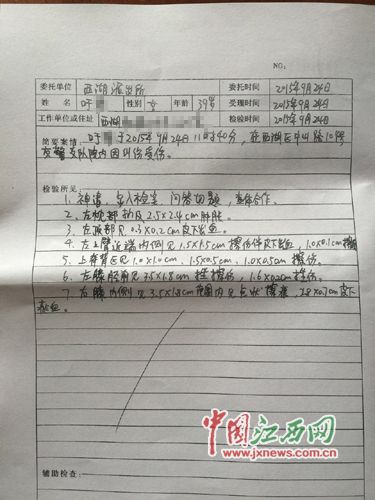 NO:
委托单位 西湖派出所 委托时间 2015年9月24日
姓名 吁 性别 女 年龄 39岁 受理时间 2015年9月24日
工作单位或住址 西湖 检验时间 2015年9月24日
简要案情: 吁 于2015年9月24日11时40分,在西湖区中山路108号
交警支队院内因纠纷受伤。
检验所见:
1、神清,步入检室,问答切题,查体合作。
2、左枕部扪及2.5×2.4cm肿胀。
3、左顶部见0.3×0.2cm皮下出血。
4、左上臂近端内侧见1.5×1.5cm擦伤伴皮下出血,1.0×0.1cm擦
5、上脊背区见1.0×1.0cm、1.5×0.5cm、1.0×0.5cm擦伤。
6、左膝胫前见3.5×1.5cm挫擦伤,1.6×0.2cm挫伤。
7、右膝内侧见3.5×1.8cm范围内见点状擦伤,2.8×0.7cm皮下
出血。
辅助检查:
中国江西网
www.jxnews.com.cn